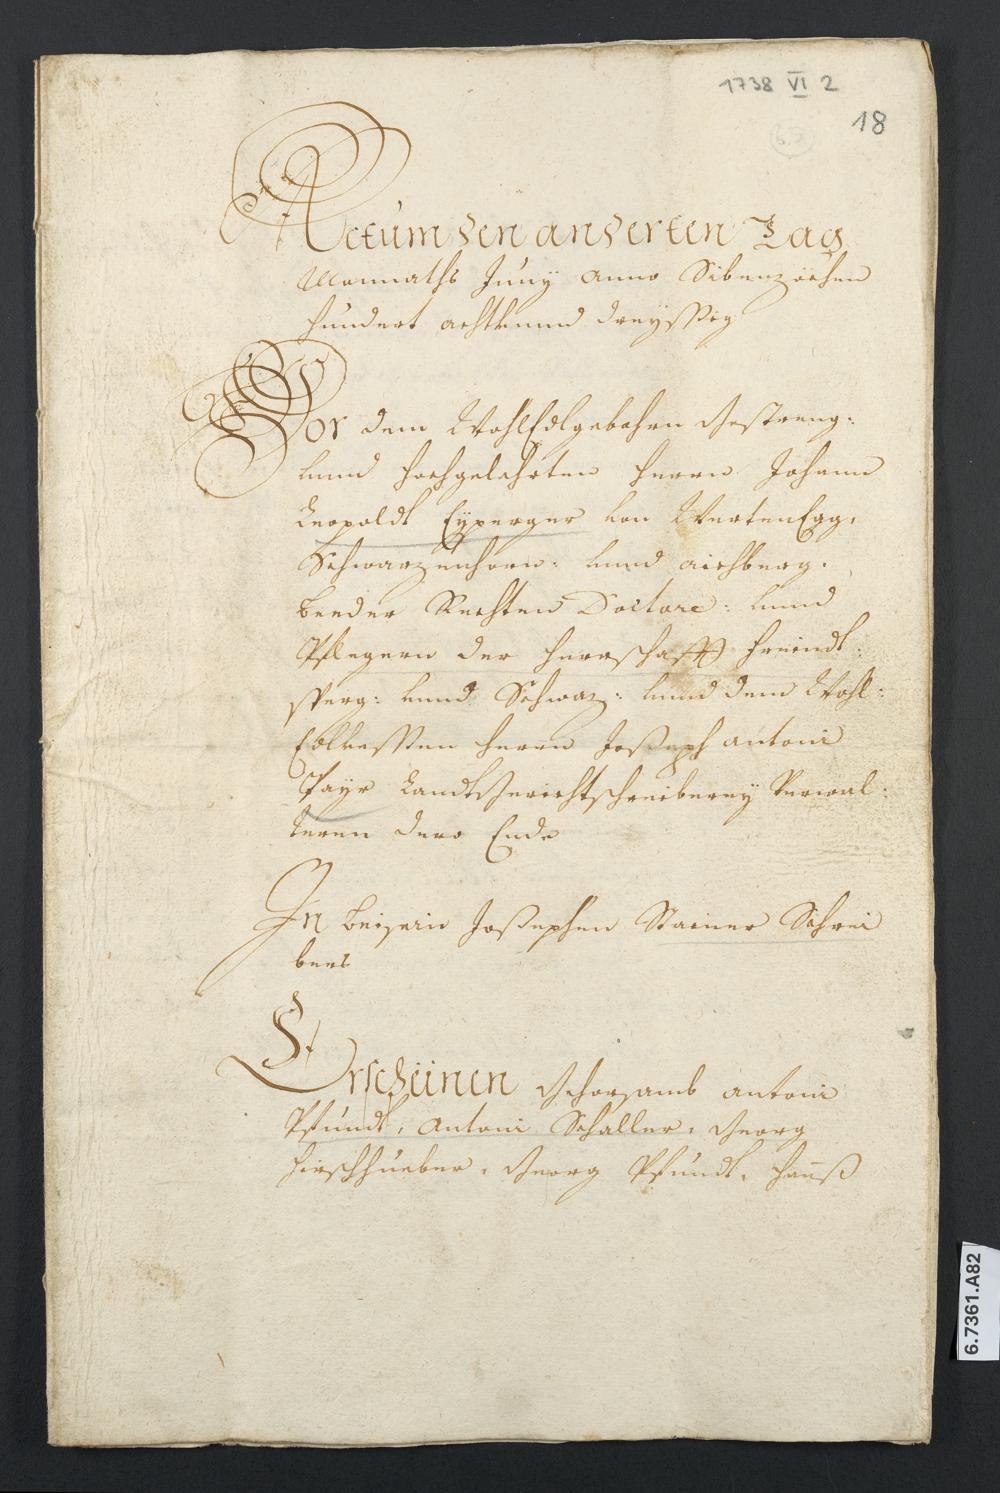 1738 VI 2
18
Actum den anderten Tag
Monnaths Juny anno Sibenzöchen
hundert achtunnd dreyssig
Vor dem WohlEdlgebohrn Gestreng:
unnd hochgelehrten herrn Johann
Leopoldt Eyperger von WertenEgg,
Schwarzenhorn: unnd aichberg,
beeder Rechten Doctore: unnd
Pflegern der herrschafft Freündt:
sperg: unnd Schwaz: unnd dem Wohl:
Edlvessten herrn Joseph antoni
Payr LandtsGerichtschreiberey Verwal:
tern dero Ende
In beisein Josephen Stainer Schrei
bers
Erscheinen Gehorsamb antoni
Pfundt, Antoni Schaller, Georg
hirschhueber, Georg Pfundt, hannß
6.7361.A82